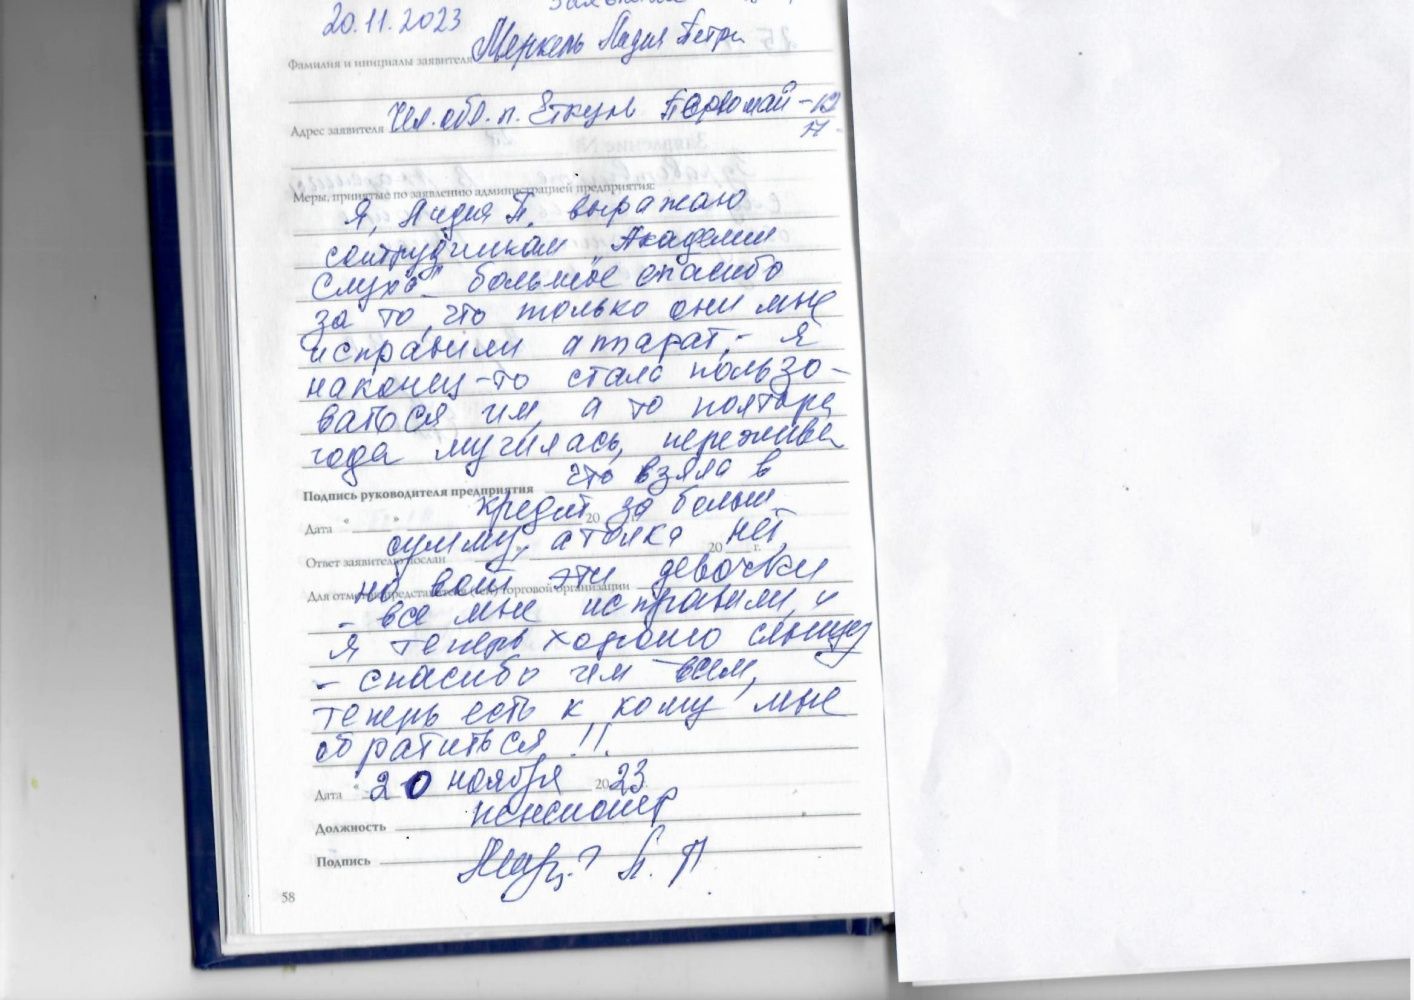 20.11.2023
Фамилия и инициалы заявителя Меркель Лидия Петр
Адрес заявителя Чел. обл. п. Еткуль Первомай - 12
17 -
Меры, принятые по заявлению администрацией предприятия:
Я, Лидия П. выражаю
сотрудникам Академии
слуха большое спасибо
за то, что только они мне
исправили аппарат, - я
наконец-то стала пользо-
ваться им, а то полтора
года мучилась, переживa
Подпись руководителя предприятия что взяла в
Дата " " кредит за больш 20 г.
сумму, а толка нет,
Ответ заявителю послан 20 г.
но вот эти девочки
- все мне исправили, и
я теперь хорошо слышу
- спасибо им всем,
теперь есть к кому мне
обратиться !!
Дата " 20 ноября 2023 г.
Должность пенсионер
Подпись Л. П.
58